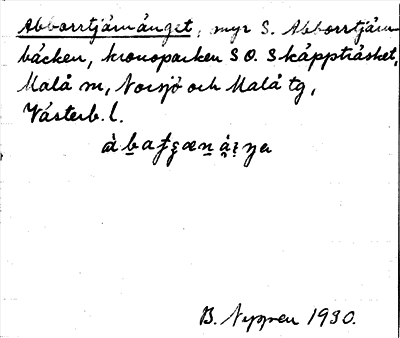 Abborrtjärnänget, myr S. Abborrtjärn
bäcken, kronoparken S O. Skäppträsket,
Malå m, Norsjö och Malå tg,
Västerb. l.
B. Nyppen 1930.